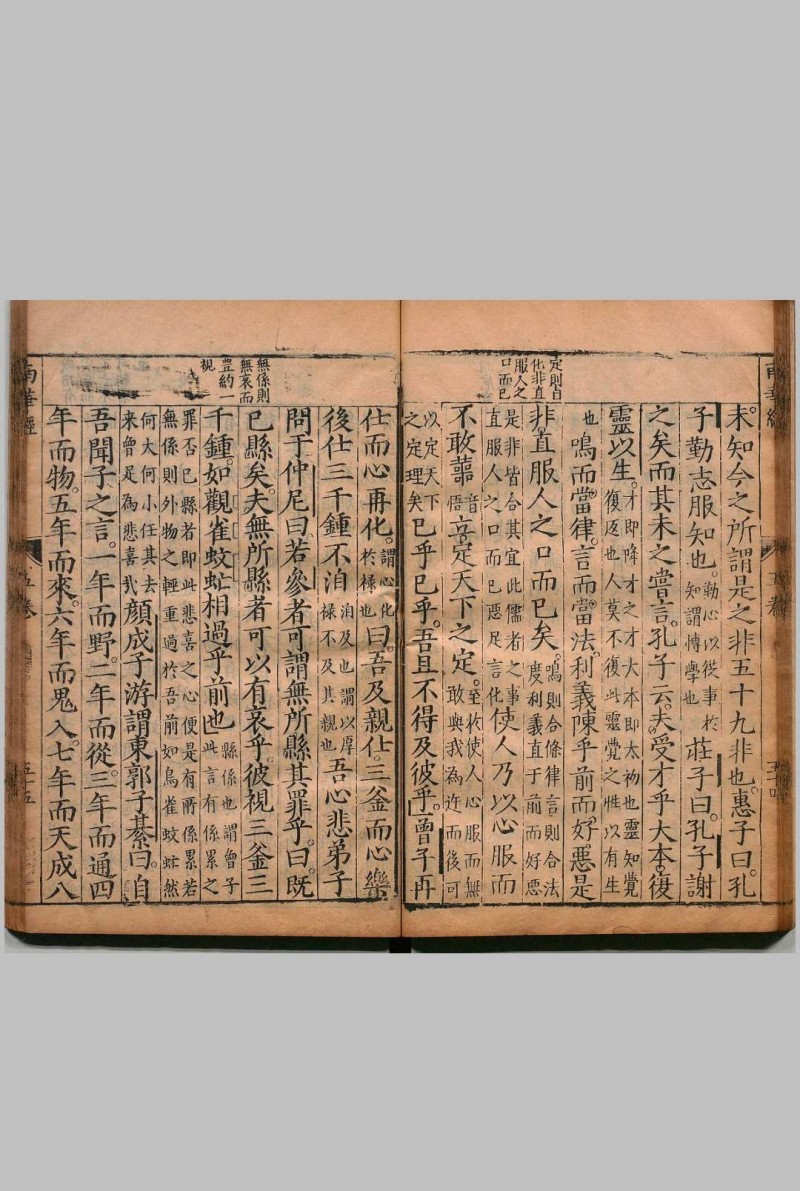 南華經
五卷
五十四
定則自
化非直
服人之
口而已
未知今之所謂是之非五十九非也惠子曰孔
子勤志服知也勤心以從事於知謂博學也莊子曰孔子謝
之矣而其未之嘗言孔子云夫受才乎大本復
靈以生才即降才之才大本即太初也靈知覺復返也人莫不復此靈覺之性以有生
也鳴而當律言而當法利義陳乎前而好惡是
非直服人之口而已矣鳴則合條律言則合法度利義直于前而好惡
是非皆合其宜此儒者之事直服人之口而已惡足言化使人乃以心服而
不敢蘁音悟立定天下之定至於使人心服而無敢與我為忤而後可
以定天下之定理矣已乎已乎吾且不得及彼乎曾子再
無係則
無哀而
豊約一
視
仕而心再化謂心化於祿也曰吾及親仕三釜而心樂
後仕三千鍾不洎洎及也謂以厚祿不及其親也吾心悲弟子
問于仲尼曰若參者可謂無所縣其罪乎曰既
已縣矣夫無所縣者可以有哀乎彼視三釜三
千鍾如觀雀蚊蝱相過乎前也縣係也謂曾子此言有係累之
罪否已縣者即此悲喜之心便是有所係累若無係則外物之輕重過於吾前如鳥雀蚊蝱然
何大何小任其去來曾足為悲喜哉顔成子游謂東郭子綦曰自
吾聞子之言一年而野二年而從三年而通四
年而物五年而來六年而鬼入七年而天成八
南華經
五卷
五十五